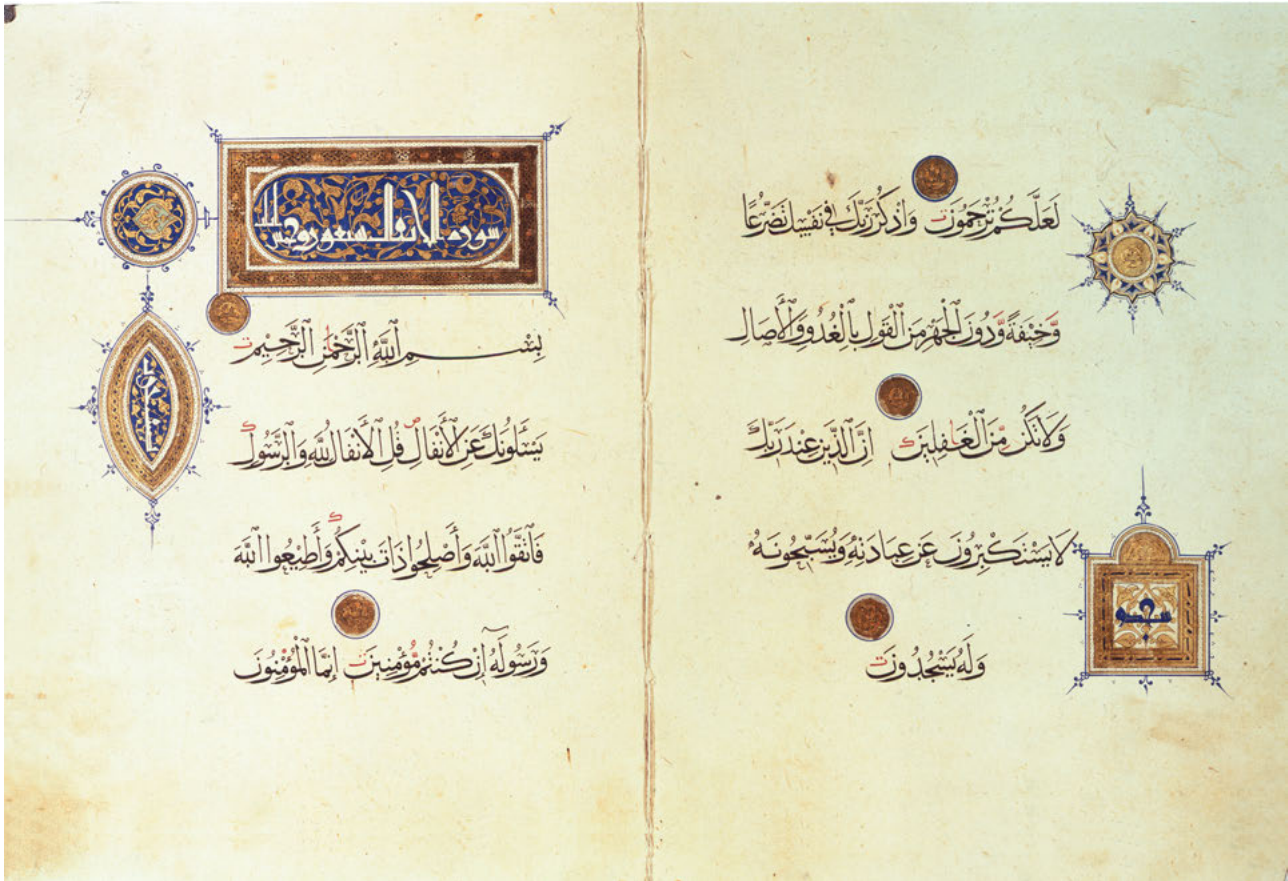 لَعَلَّكُمْ تُرْحَمُونَ وَاذْكُر رَّبَّكَ فِي نَفْسِكَ تَضَرُّعًا
وَّخِيفَةً وَّدُونَ الْجَهْرِ مِنَ الْقَوْلِ بِالْغُدُوِّ وَالْأَصَالِ
وَلَا تَكُن مِّنَ الْغَافِلِينَ إِنَّ الَّذِينَ عِندَ رَبِّكَ
لَا يَسْتَكْبِرُونَ عَنْ عِبَادَتِهِ وَيُسَبِّحُونَهُ
وَلَهُ يَسْجُدُونَ
سجدة
سورة الانفال سبعون وخمس
بِسْمِ اللَّهِ الرَّحْمَٰنِ الرَّحِيمِ
يَسْـَٔلُونَكَ عَنِ الْأَنْفَالِ قُلِ الْأَنْفَالُ لِلَّهِ وَالرَّسُولِ
فَاتَّقُوا اللَّهَ وَأَصْلِحُوا ذَاتَ بَيْنِكُمْ وَأَطِيعُوا اللَّهَ
وَرَسُولَهُ إِنْ كُنْتُمْ مُّؤْمِنِينَ إِنَّمَا الْمُؤْمِنُونَ